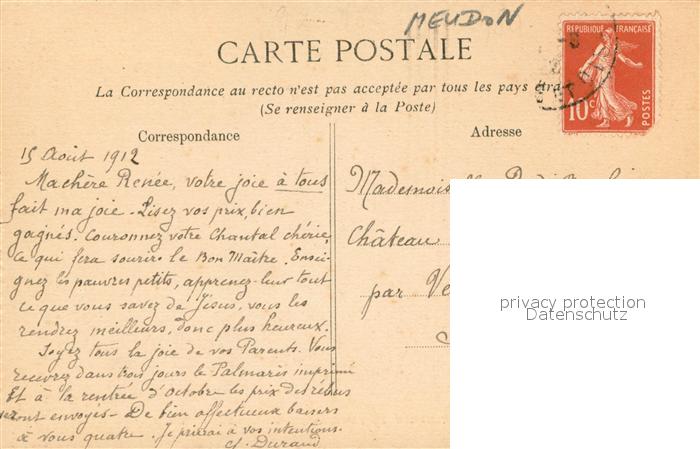 MEUDON
CARTE POSTALE
REPUBLIQUE FRANÇAISE
10c
POSTES
La Correspondance au recto n'est pas acceptée par tous les pays
(Se renseigner à la Poste)
Correspondance
Adresse
15 Août 1912
Ma chère Renée, votre joie à tous
fait ma joie. Lisez vos prix, bien
gagnés. Couronnez votre Chantal chérie,
ce qui fera sourire le Bon Maître. Ensei-
gnez les pauvres petits, apprenez-leur tout
ce que vous savez de Jésus, vous les
rendrez meilleurs, donc plus heureux.
Soyez tous la joie de vos Parents. Vous
recevrez dans trois jours le Palmarès imprimé
Et à la rentrée d'Octobre les prix des rébus
seront envoyés - De bien affectueux baisers
à vous quatre. Je prierai à vos intentions.
Durand
Château
par
privacy protection
Datenschutz